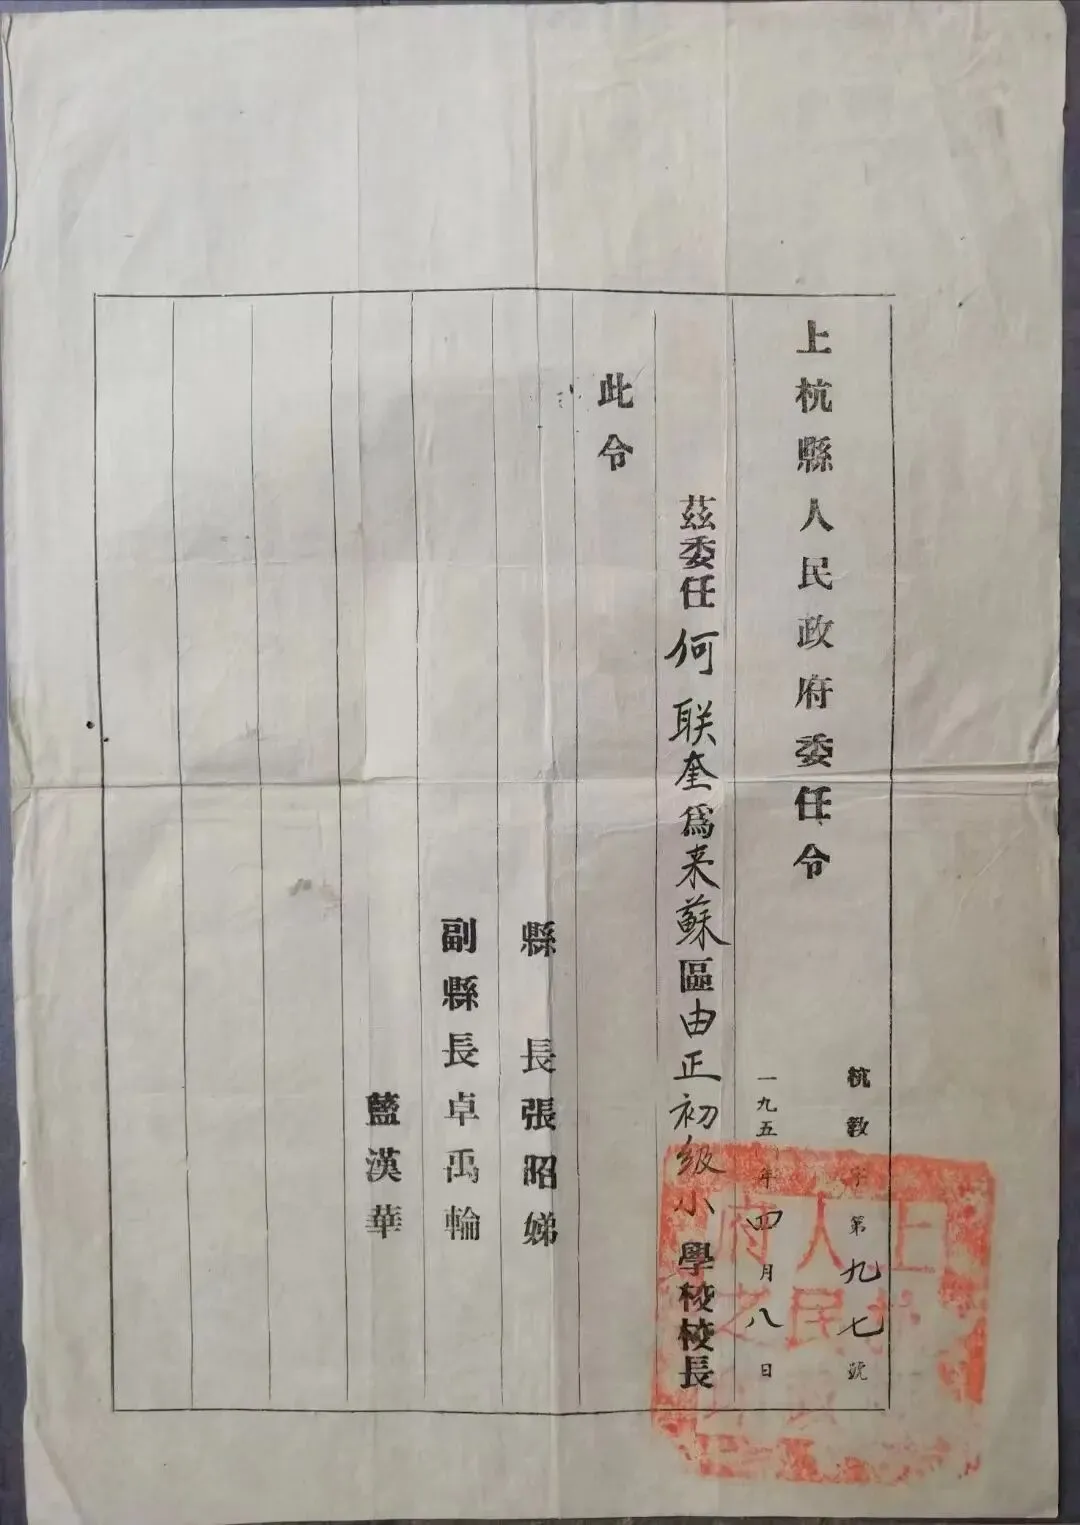 上杭縣人民政府委任令
杭教字第九七號
一九五 年四月八日
茲委任何联奎為来蘇區由正初级小學校校長
此令
縣長張昭娣
副縣長卓禹輪
藍漢華
上杭
人民
府之